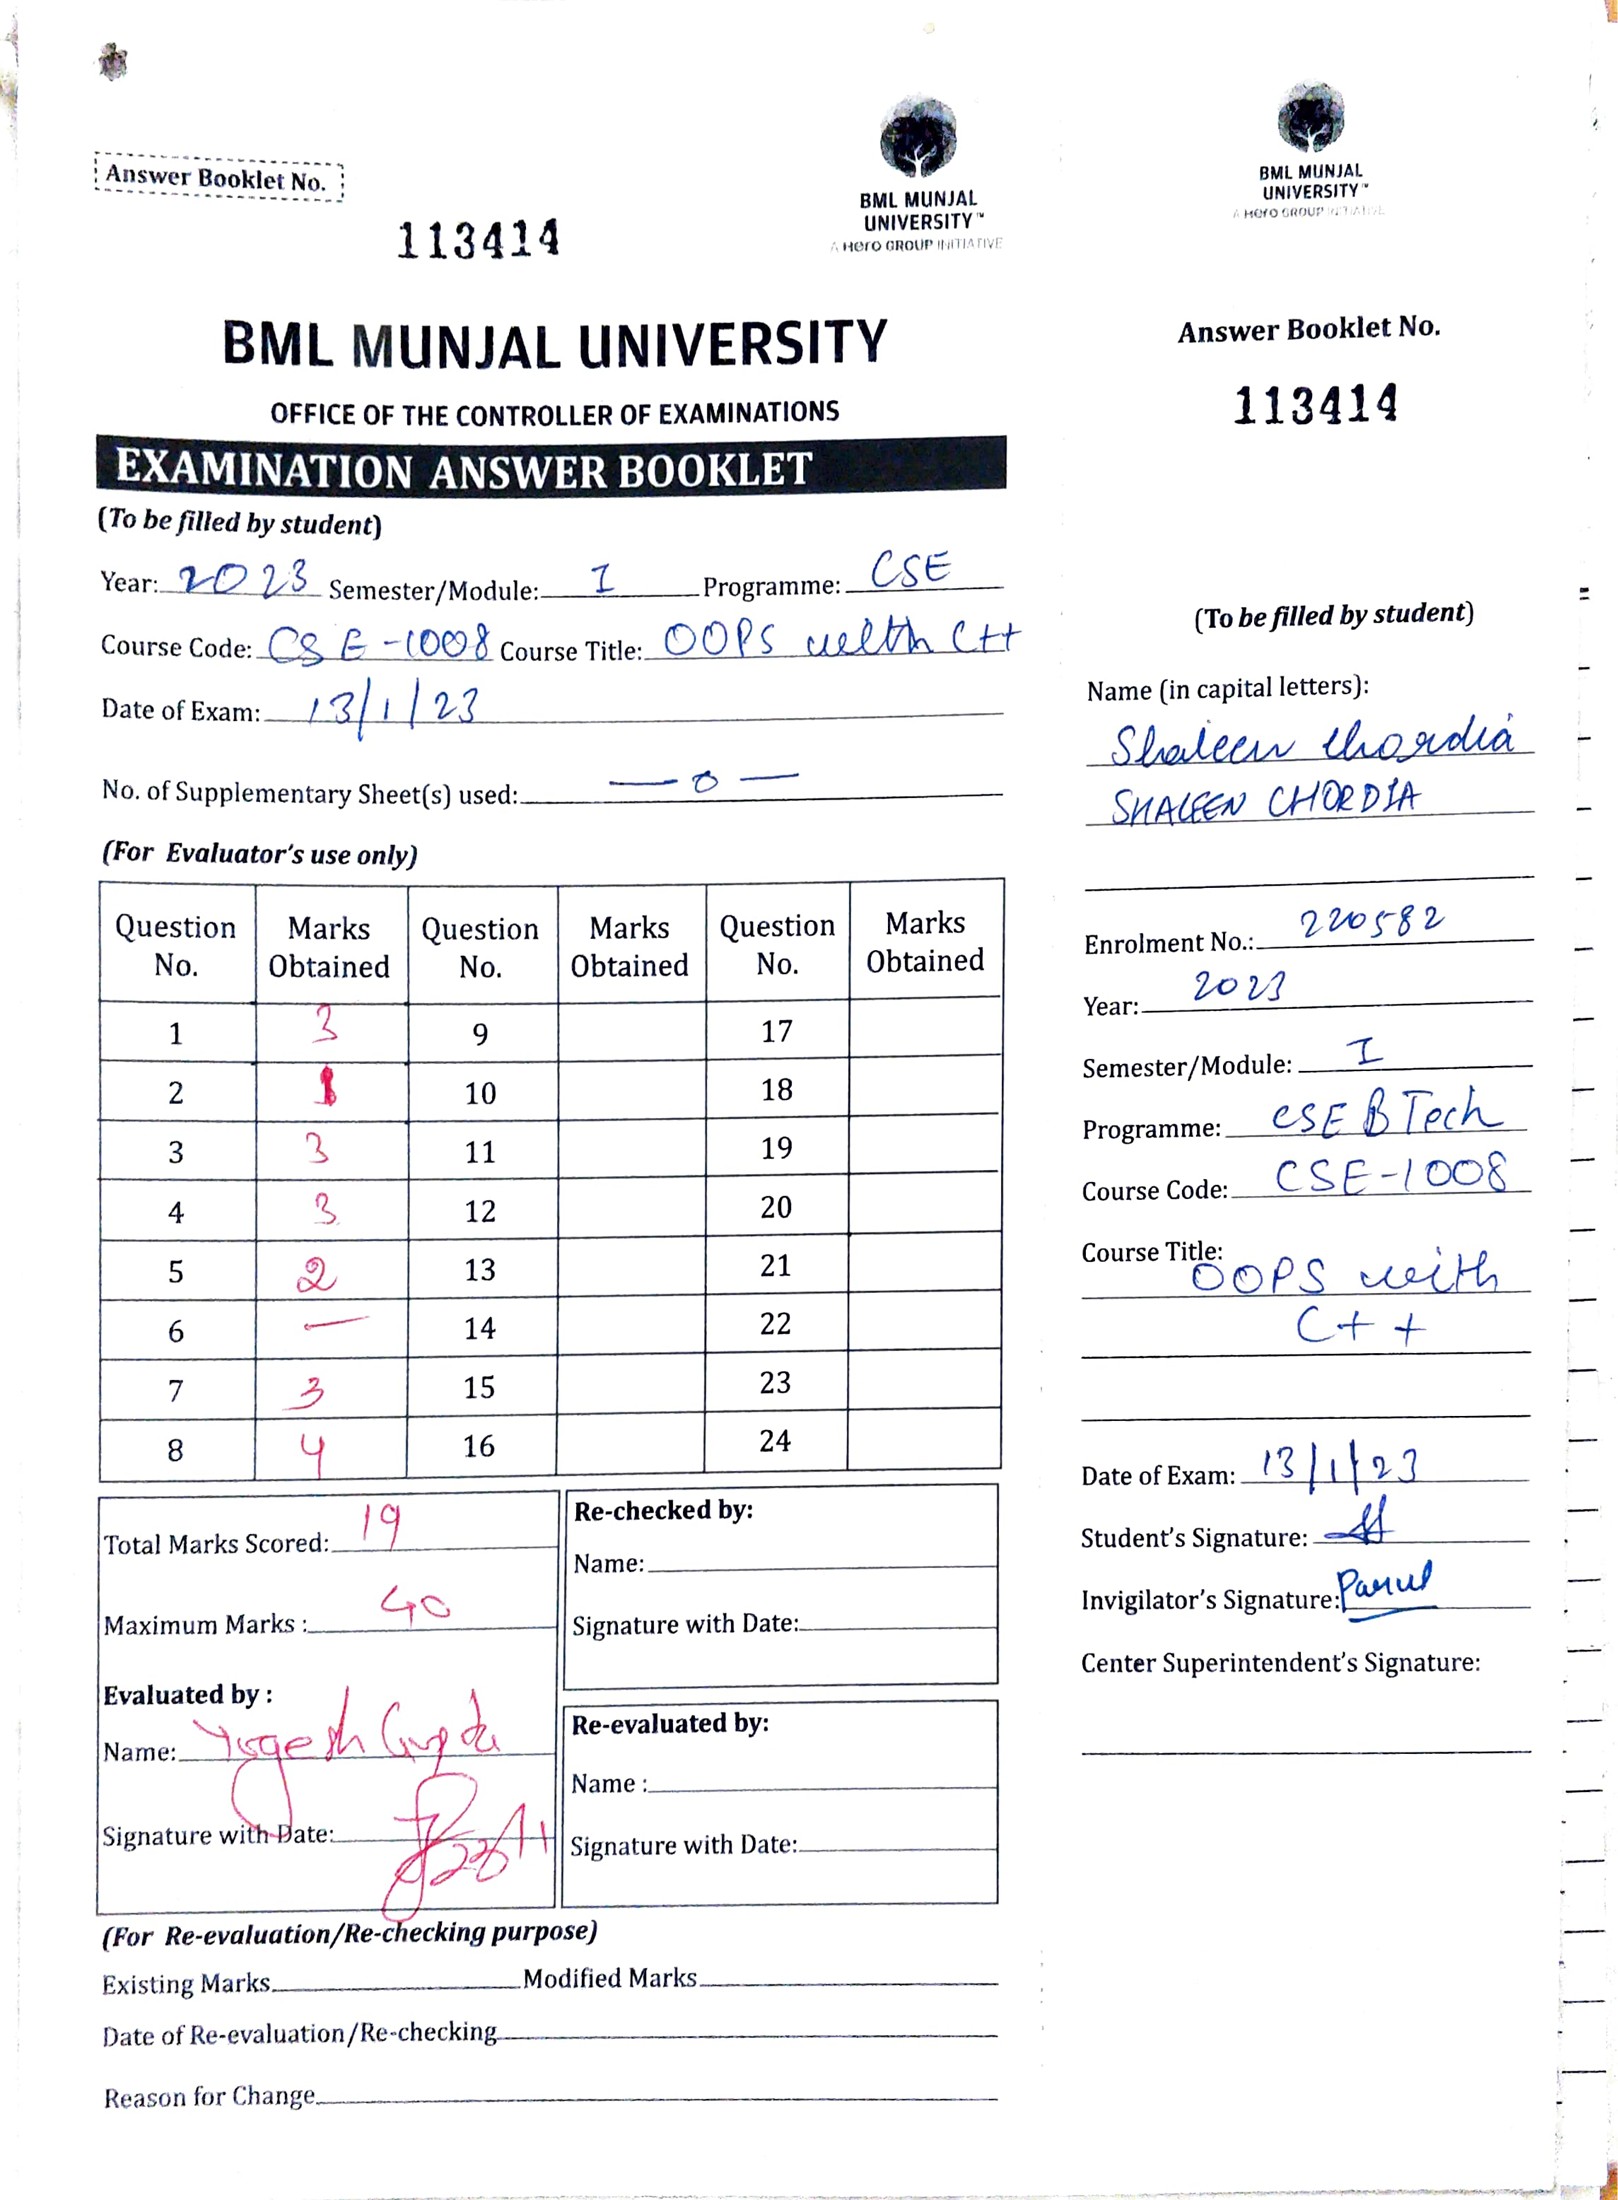 Answer Booklet No.
113414
BML MUNJAL
UNIVERSITY™
A Hero GROUP INITIATIVE
BML MUNJAL UNIVERSITY
OFFICE OF THE CONTROLLER OF EXAMINATIONS
EXAMINATION ANSWER BOOKLET
(To be filled by student)
Year: 2023 Semester/Module: I Programme: CSE
Course Code: CSE-1008 Course Title: OOPS with C++
Date of Exam: 13/1/23
No. of Supplementary Sheet(s) used: — 0 —
(For Evaluator's use only)
Question No. Marks Obtained Question No. Marks Obtained Question No. Marks Obtained
1 3 9 17
2 1 10 18
3 3 11 19
4 3 12 20
5 2 13 21
6 — 14 22
7 3 15 23
8 4 16 24
Total Marks Scored: 19
Maximum Marks : 40
Evaluated by :
Name: Yogesh Gupta
Signature with Date:
Re-checked by:
Name:
Signature with Date:
Re-evaluated by:
Name :
Signature with Date:
(For Re-evaluation/Re-checking purpose)
Existing Marks Modified Marks
Date of Re-evaluation/Re-checking
Reason for Change
BML MUNJAL
UNIVERSITY™
A Hero GROUP INITIATIVE
Answer Booklet No.
113414
(To be filled by student)
Name (in capital letters):
Shaleen Chordia
SHALEEN CHORDIA
Enrolment No.: 220582
Year: 2023
Semester/Module: I
Programme: CSE B Tech
Course Code: CSE-1008
Course Title: OOPS with
C++
Date of Exam: 13/1/23
Student's Signature:
Invigilator's Signature: Parul
Center Superintendent's Signature: